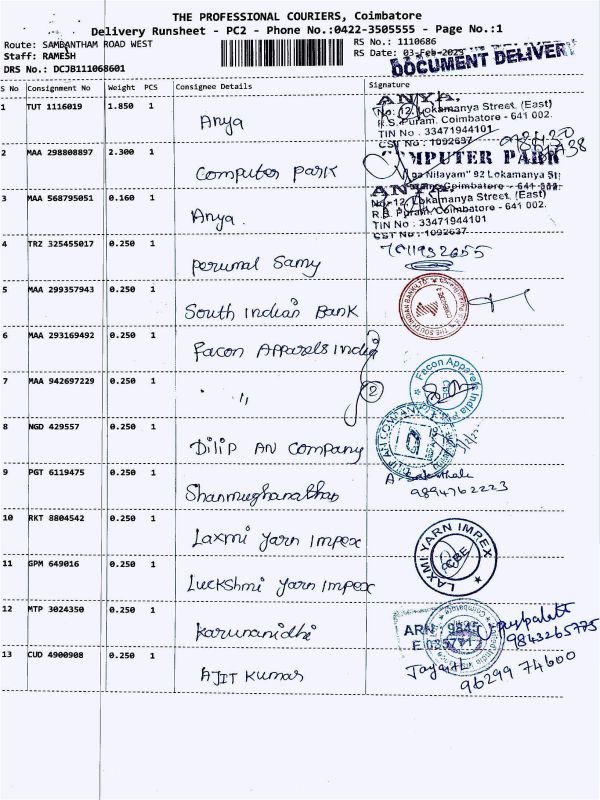 THE PROFESSIONAL COURIERS, Coimbatore
Delivery Runsheet - PC2 - Phone No.:0422-3505555 - Page No.:1
Route: SAMBANTHAM ROAD WEST
RS No.: 1110686
Staff: RAMESH
RS Date: 03-Feb-2023
DRS No.: DCJB111068601
DOCUMENT DELIVERY
S No Consignment No Weight PCS Consignee Details Signature
1 TUT 1116019 1.850 1 Anya
ANYA.
No: 12, Lokamanya Street, (East)
R.S. Puram, Coimbatore - 641 002.
TIN No : 33471944101
CST No : 1092637
2 MAA 298808897 2.300 1 Computer Park
MPUTER PARK
Nilayam" 92 Lokamanya St
Coimbatore - 641 002.
3 MAA 568795051 0.160 1 Anya.
ANYA.
No: 12, Lokamanya Street, (East)
R.S. Puram, Coimbatore - 641 002.
TIN No : 33471944101
CST No : 1092637
4 TRZ 325455017 0.250 1 Perumal Samy
5 MAA 299357943 0.250 1 South Indian Bank
THE SOUTH INDIAN BANK LTD.
6 MAA 293169492 0.250 1 Facon Apparels India
7 MAA 942697229 0.250 1 " 2
Facon Apparels India
8 NGD 429557 0.250 1 Dilip AN Company
9 PGT 6119475 0.250 1 Shanmughanathan
9894762223
10 RKT 8804542 0.250 1 Laxmi Yarn Impex
LAXMI YARN IMPEX
CBE
11 GPM 649016 0.250 1 Luckshmi Yarn Impex
12 MTP 3024350 0.250 1 Karunanidhi
ARN 9845
9843265775
13 CUD 4900908 0.250 1 AJIT Kumar
96299 74600